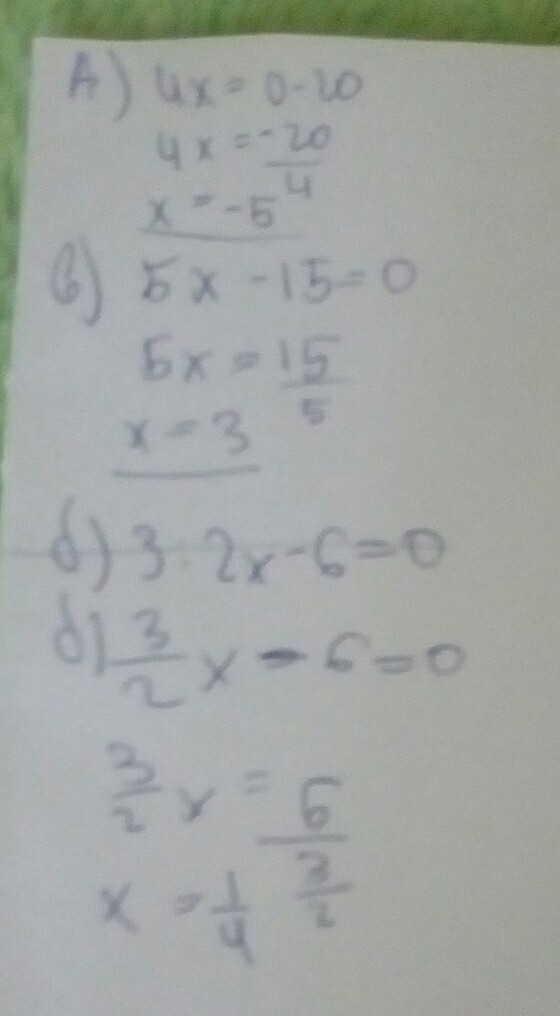 А) 4x = 0-20
4x = -20/4
x = -5
в) 5x - 15 = 0
5x = 15/5
x = 3
б) 3 · 2x - 6 = 0
б) 3/2 x - 6 = 0
3/2 x = 6/(3/2)
x = 1/4